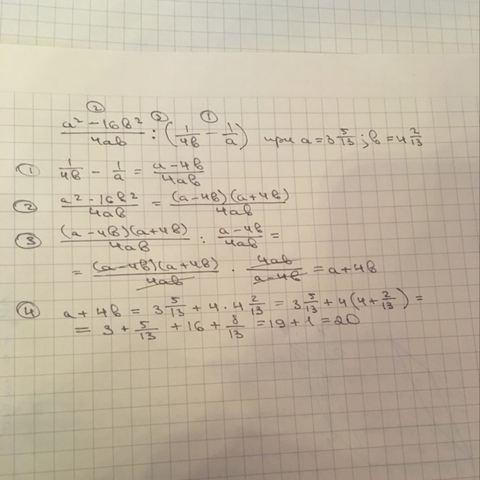 ② ② ①
(a² - 16b²)/(4ab) : (1/(4b) - 1/a) при a = 3 5/13 ; b = 4 2/13
① 1/(4b) - 1/a = (a - 4b)/(4ab)
② (a² - 16b²)/(4ab) = ((a - 4b)(a + 4b))/(4ab)
③ ((a - 4b)(a + 4b))/(4ab) : (a - 4b)/(4ab) =
= ((a - 4b)(a + 4b))/(4ab) · (4ab)/(a - 4b) = a + 4b
④ a + 4b = 3 5/13 + 4 · 4 2/13 = 3 5/13 + 4(4 + 2/13) =
= 3 + 5/13 + 16 + 8/13 = 19 + 1 = 20